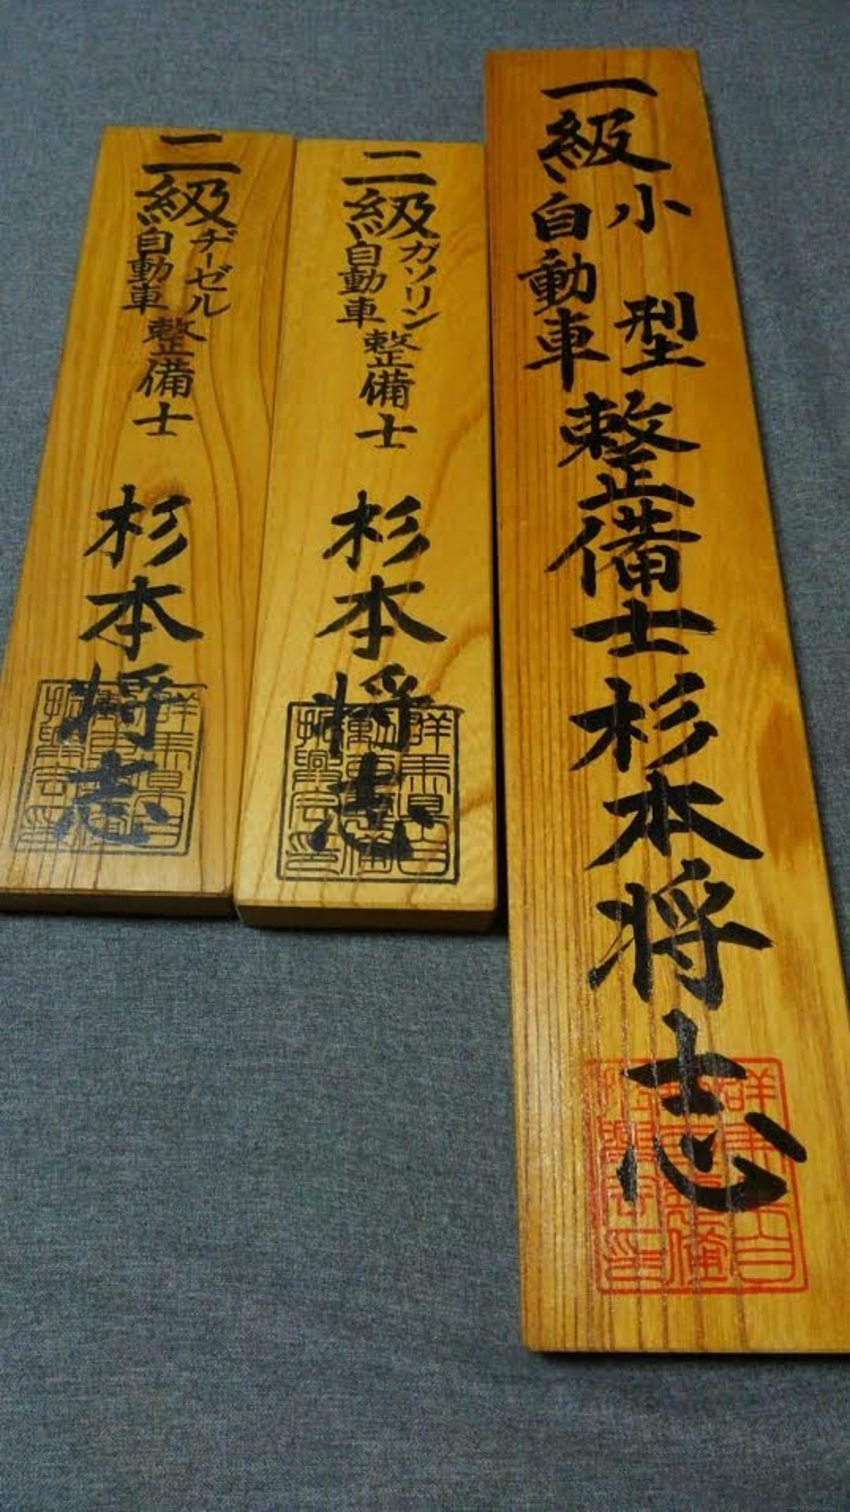 一級小型自動車整備士杉本将志
二級ガソリン自動車整備士 杉本将志
二級ヂーゼル自動車整備士 杉本将志